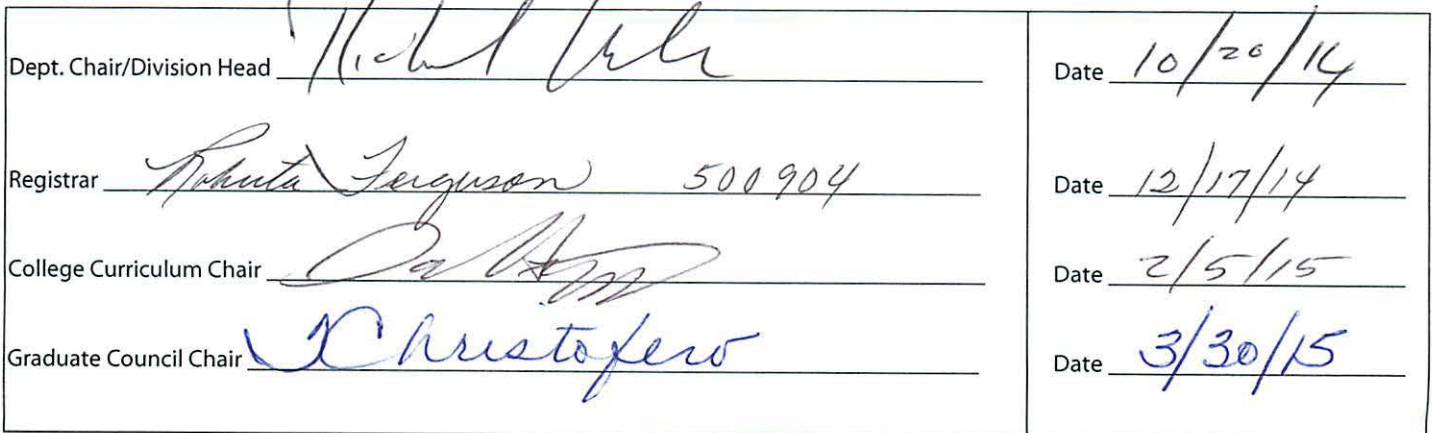 Dept. Chair/Division Head Date 10/20/14
Registrar Roberta Ferguson 500904 Date 12/17/14
College Curriculum Chair Date 2/5/15
Graduate Council Chair Christofero Date 3/30/15